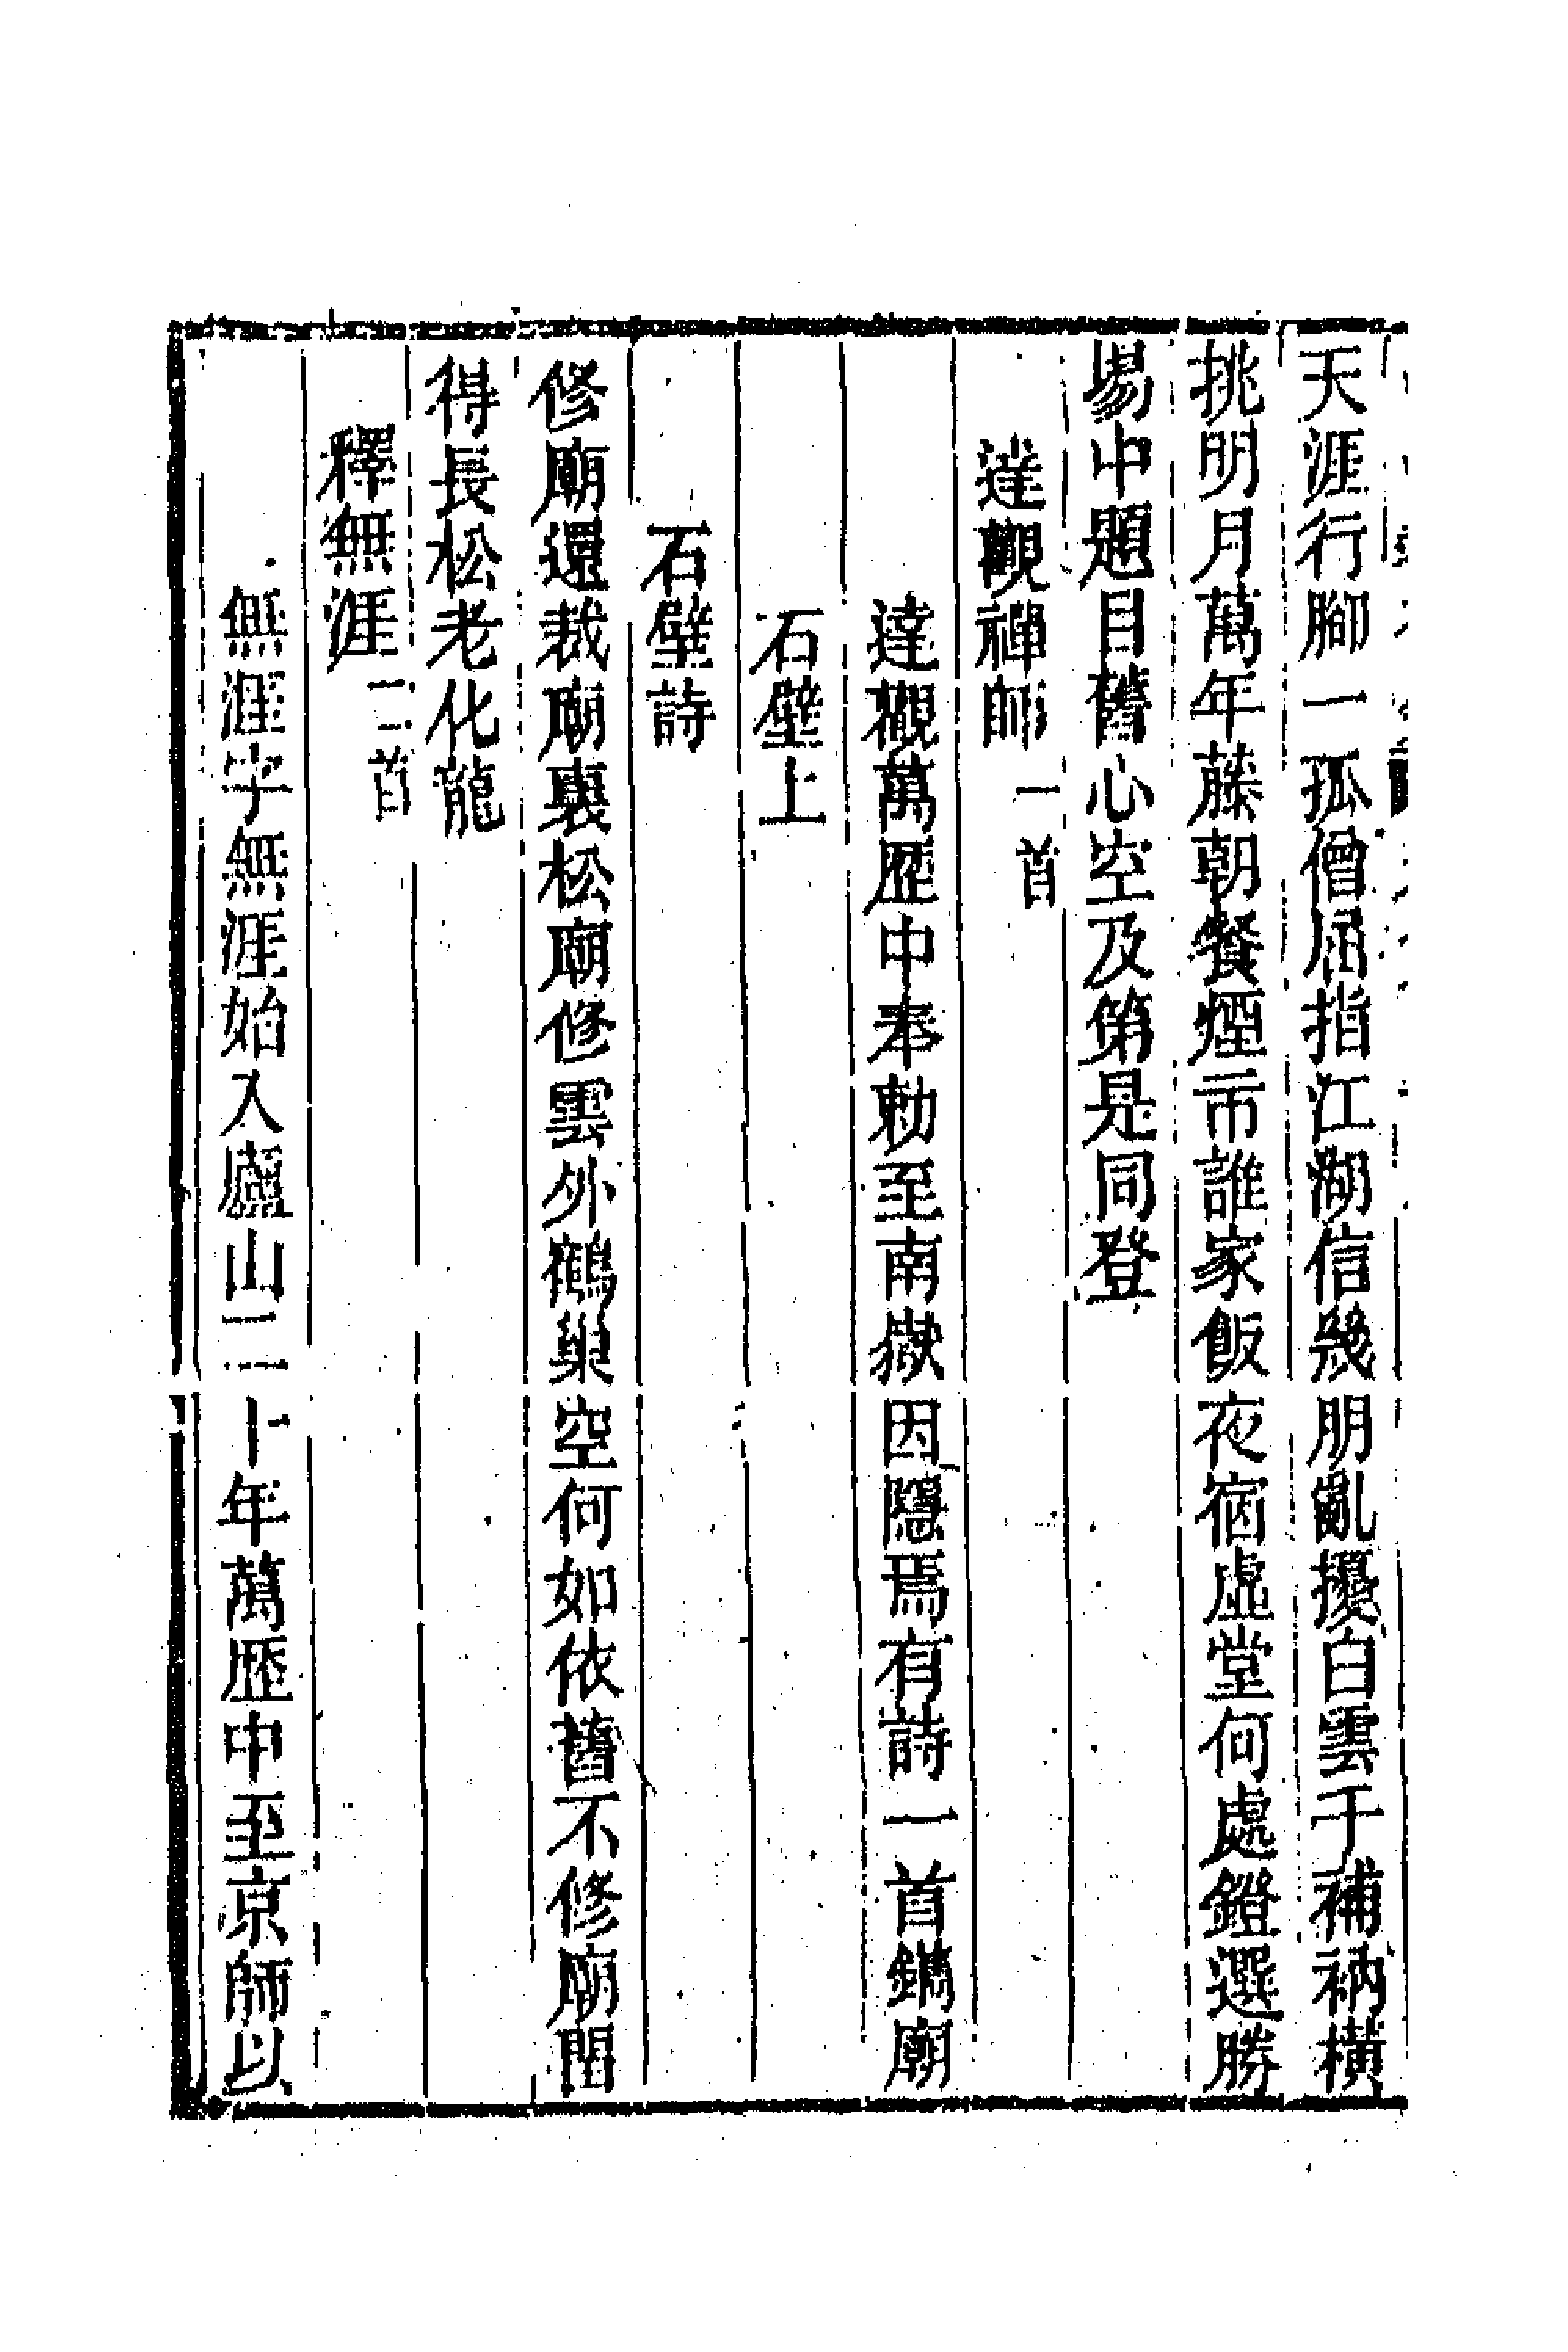 天涯行腳一孤僧屈指江湖信幾朋亂擾白雲千補衲橫
挑明月萬年藤朝餐煙市誰家飯夜宿虛堂何處鐙選勝
場中題目舊心空及第是同登
達觀禪師一首
達觀萬歷中奉勅至南嶽因隱焉有詩一首鐫廟
石壁上
石壁詩
修廟還裁廟裏松廟修雲外鶴巢空何如依舊不修廟閒
得長松老化龍
釋無涯二首
無涯字無涯始入廬山二十年萬歷中至京師以